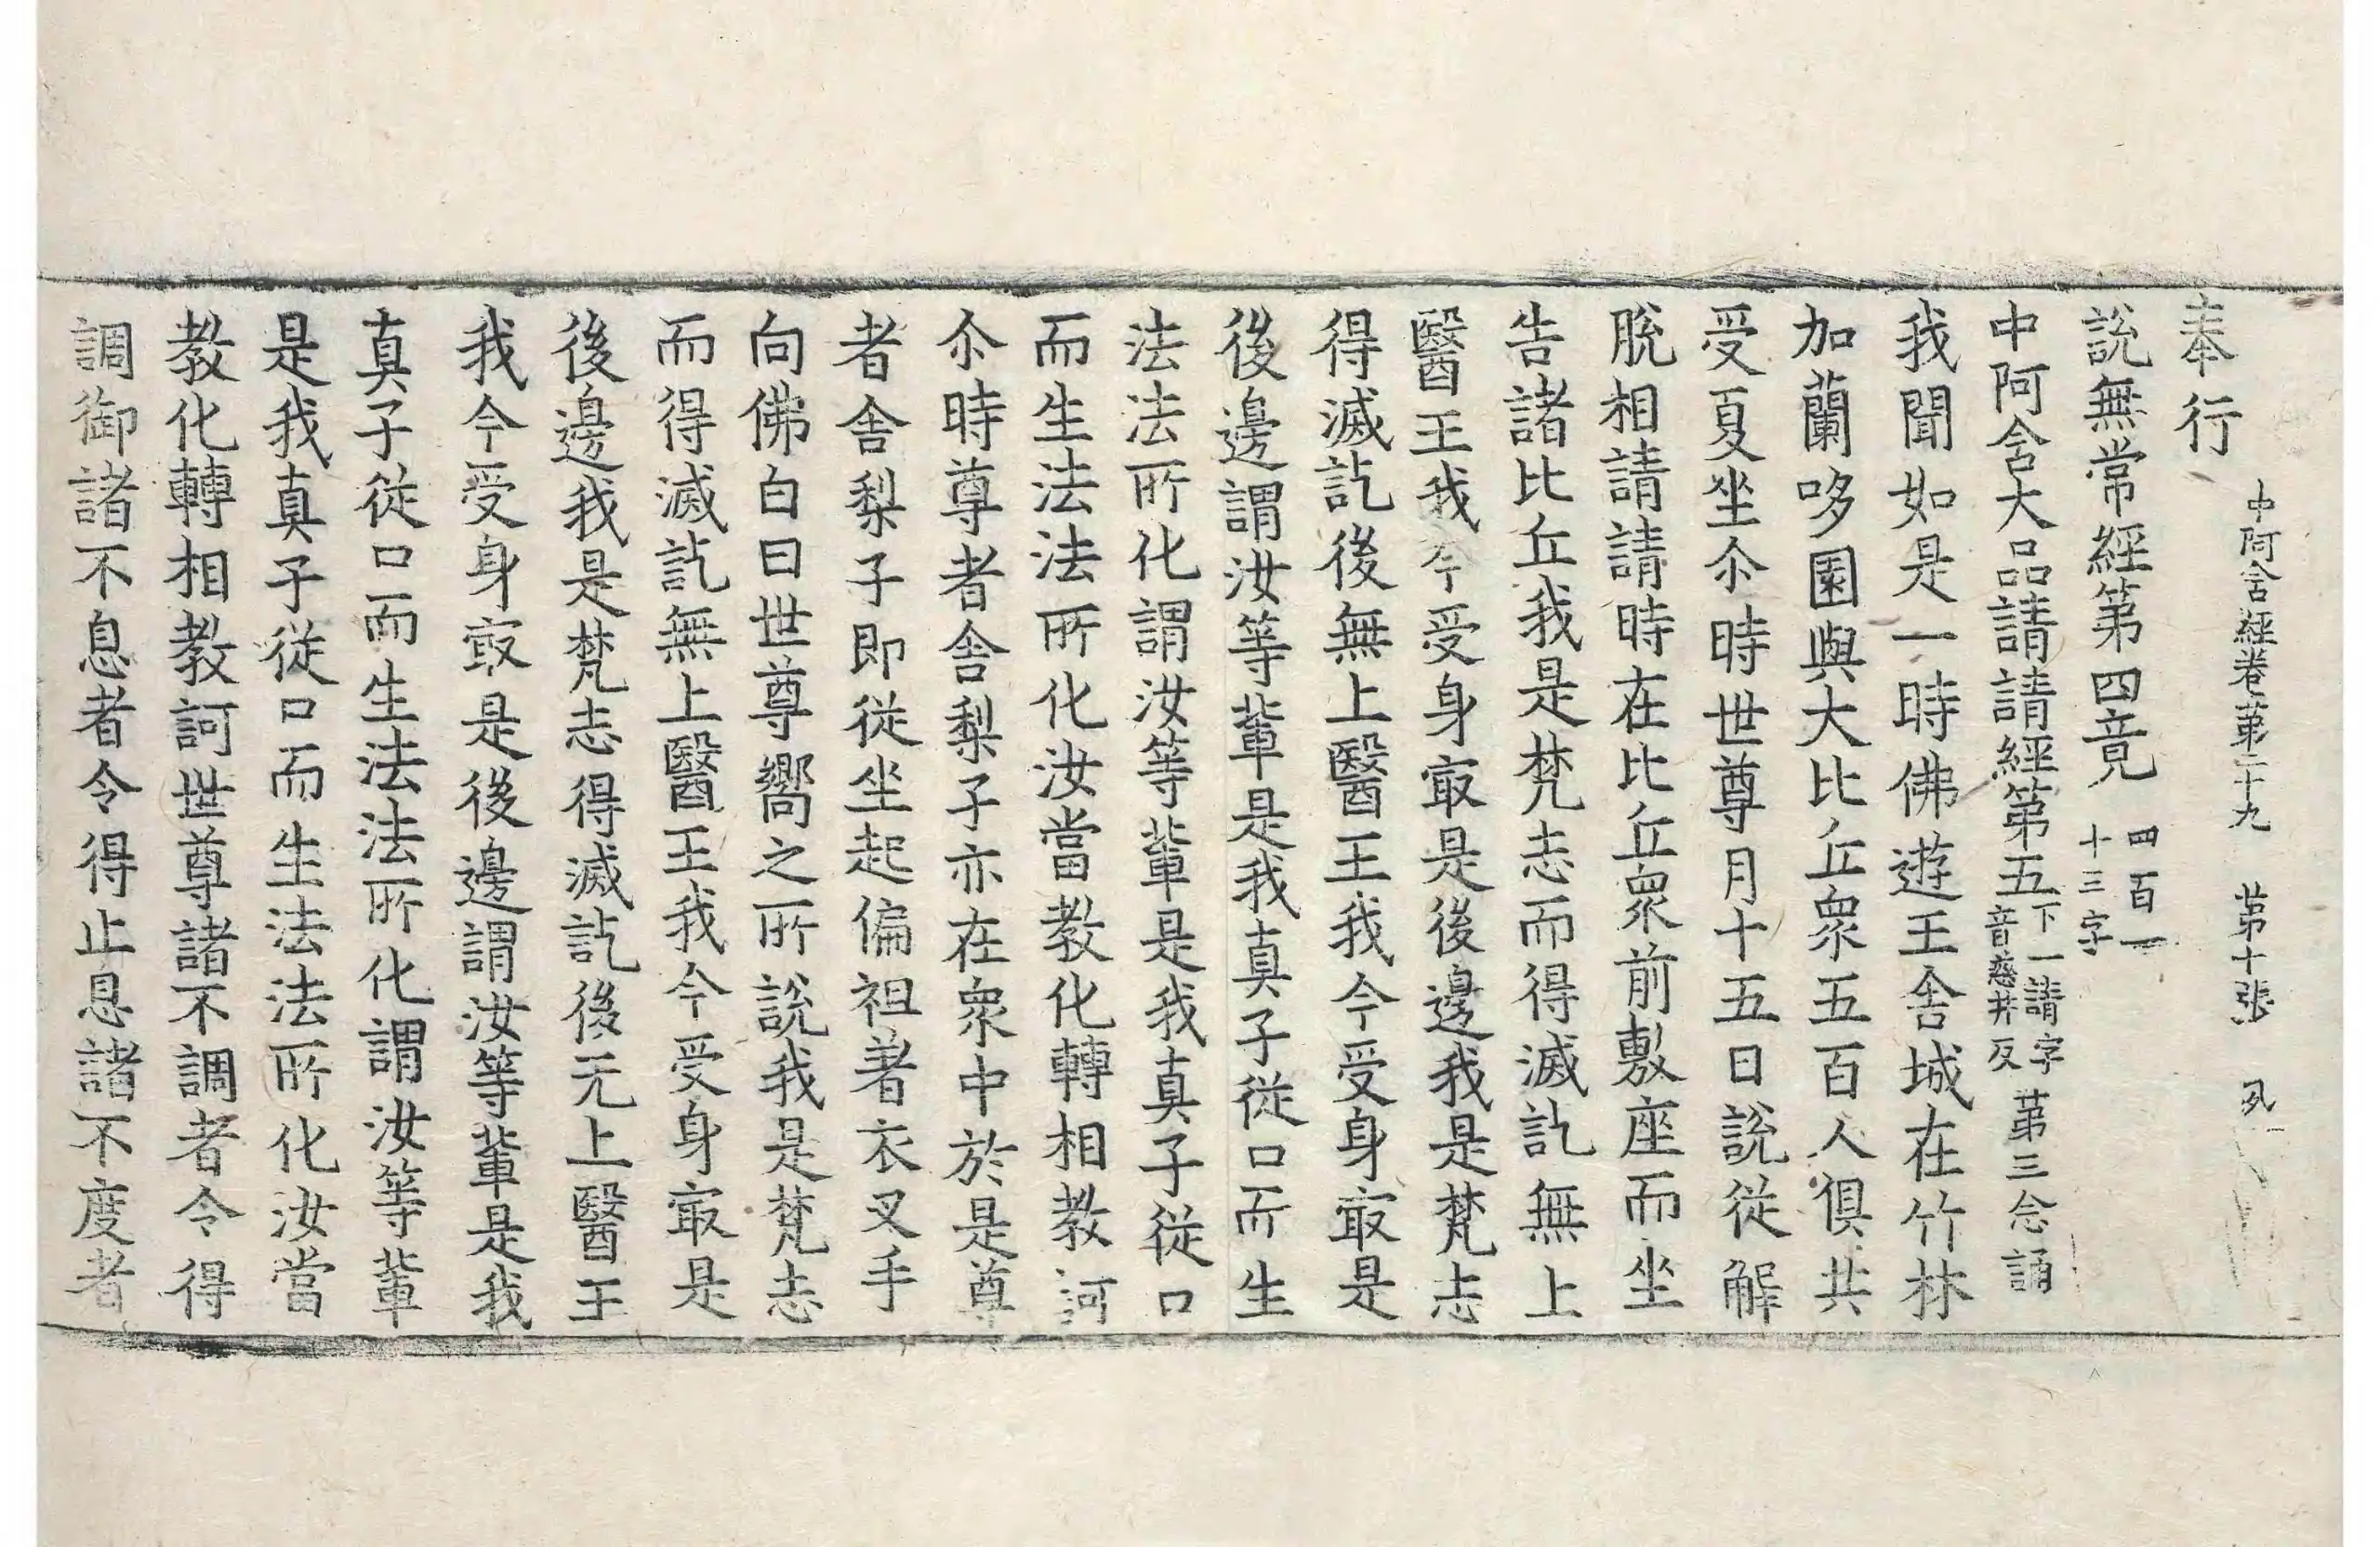 中阿含經卷第二十九　第十張　夙
奉行
說無常經第四竟 四百一十三字
中阿含大品請請經第五 下一請字音慈井反 第三念誦
我聞如是一時佛遊王舍城在竹林
加蘭哆園與大比丘衆五百人俱共
受夏坐尒時世尊月十五日說從解
脫相請請時在比丘衆前敷座而坐
告諸比丘我是梵志而得滅訖無上
醫王我今受身㝡是後邊我是梵志
得滅訖後無上醫王我今受身㝡是
後邊謂汝等輩是我真子從口而生
法法所化謂汝等輩是我真子從口
而生法法所化汝當教化轉相教訶
尒時尊者舍梨子亦在衆中於是尊
者舍梨子即從坐起偏袒著衣叉手
向佛白曰世尊嚮之所說我是梵志
而得滅訖無上醫王我今受身㝡是
後邊我是梵志得滅訖後无上醫王
我今受身㝡是後邊謂汝等輩是我
真子從口而生法法所化謂汝等輩
是我真子從口而生法法所化汝當
教化轉相教訶世尊諸不調者令得
調御諸不息者令得止息諸不度者